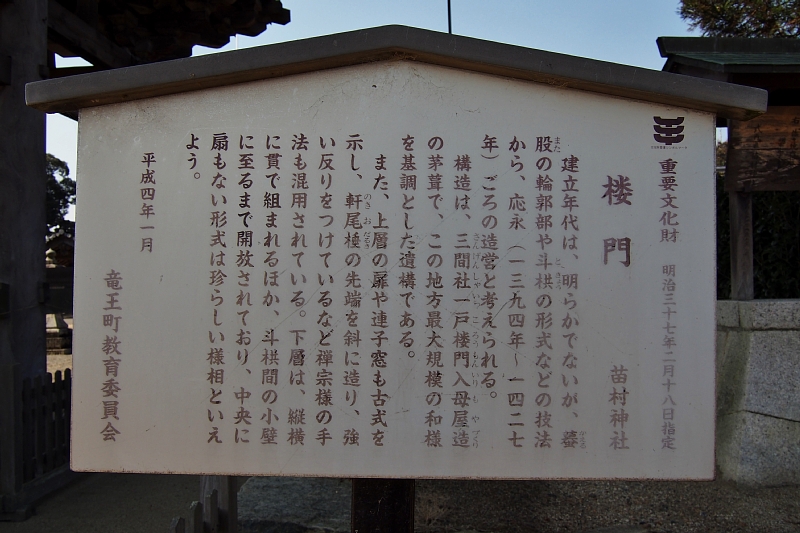 重要文化財　明治三十七年二月十八日指定
楼門　苗村神社
建立年代は、明らかでないが、蟇
股の輪郭部や斗栱の形式などの技法
から、応永（一三九四年～一四二七
年）ごろの造営と考えられる。
構造は、三間社一戸楼門入母屋造
の茅葺で、この地方最大規模の和様
を基調とした遺構である。
また、上層の扉や連子窓も古式を
示し、軒尾棰の先端を斜に造り、強
い反りをつけているなど禅宗様の手
法も混用されている。下層は、縦横
に貫で組まれるほか、斗栱間の小壁
に至るまで開放されており、中央に
扇もない形式は珍らしい様相といえ
よう。
平成四年一月
竜王町教育委員会